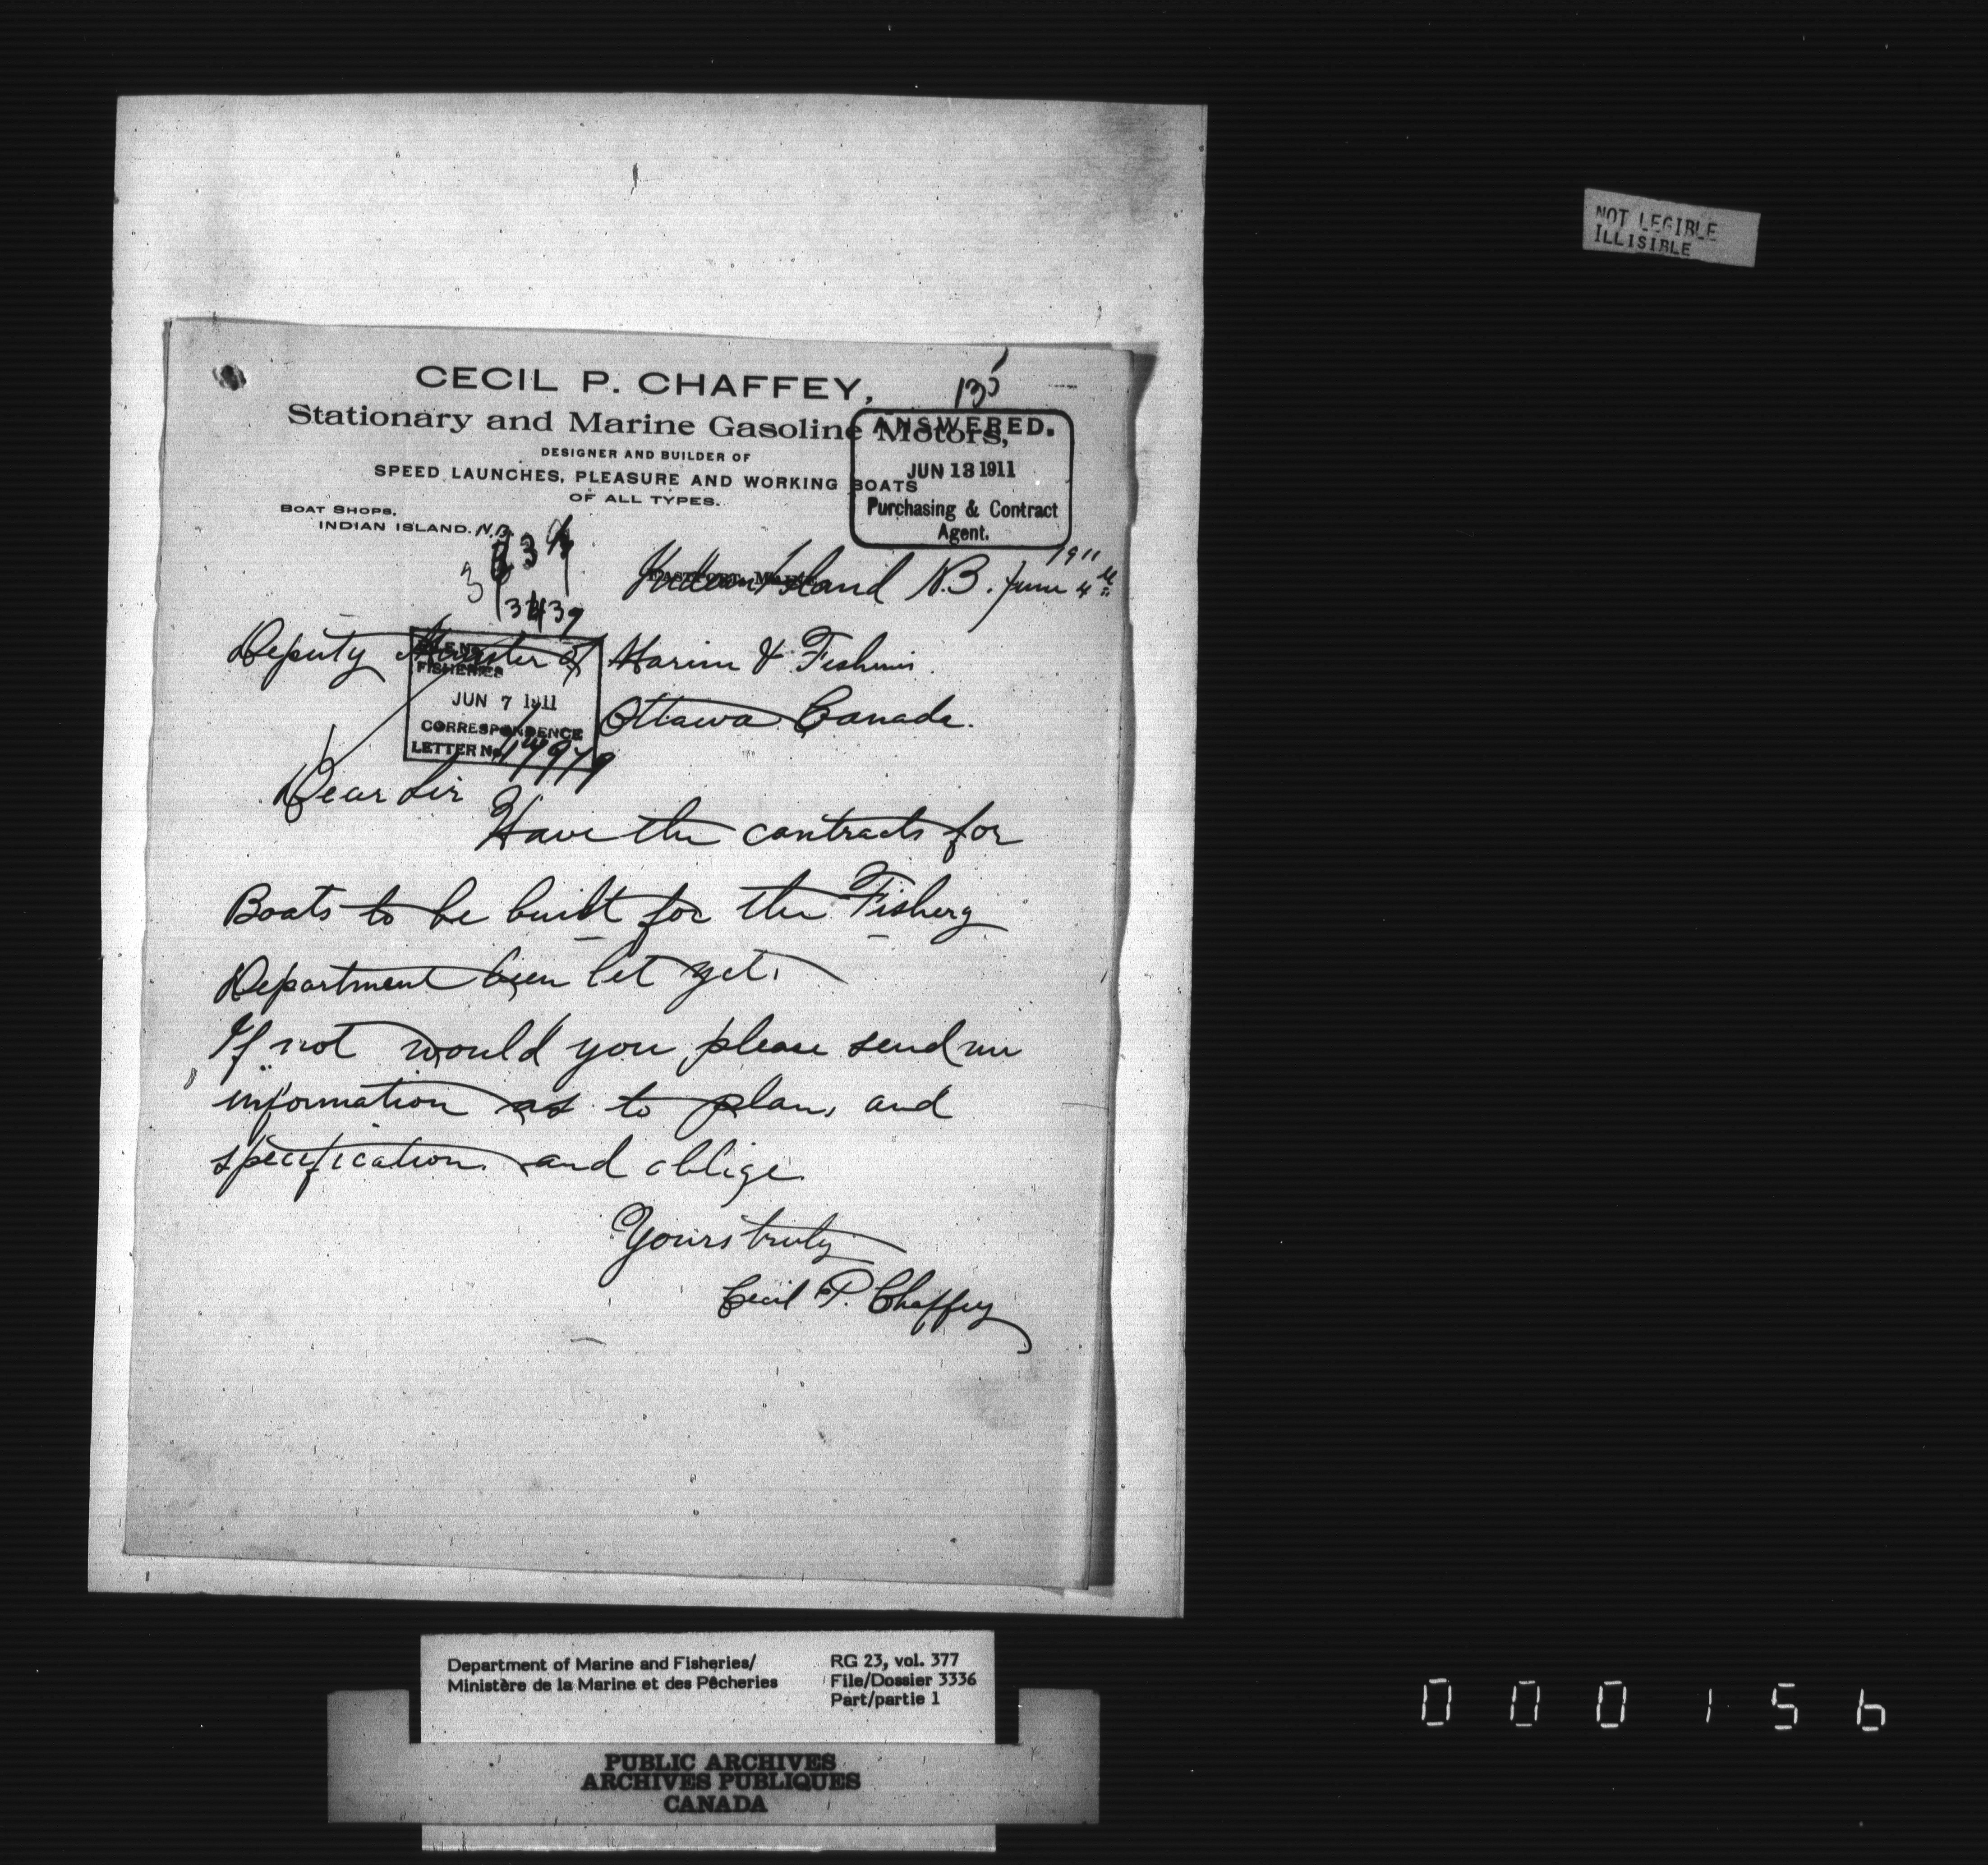 NOT LEGIBLE
ILLISIBLE
135
CECIL P. CHAFFEY,
Stationary and Marine Gasoline Motors,
DESIGNER AND BUILDER OF
SPEED LAUNCHES, PLEASURE AND WORKING BOATS
OF ALL TYPES.
BOAT SHOPS,
INDIAN ISLAND. N.B.
ANSWERED.
JUN 13 1911
Purchasing & Contract
Agent.
EASTPORT, MAINE
Indian Island N.B. June 4th 1911
Deputy Minister of Marine & Fisheries
Ottawa Canada.
FISHERIES
JUN 7 1911
CORRESPONDENCE
LETTER No.
Dear Sir
Have the contracts for
Boats to be built for the Fishery
Department been let yet.
If not would you please send me
information as to plans and
specifications and oblige
Yours truly
Cecil P. Chaffey
Department of Marine and Fisheries/
Ministère de la Marine et des Pêcheries
RG 23, vol. 377
File/Dossier 3336
Part/partie 1
PUBLIC ARCHIVES
ARCHIVES PUBLIQUES
CANADA
000156